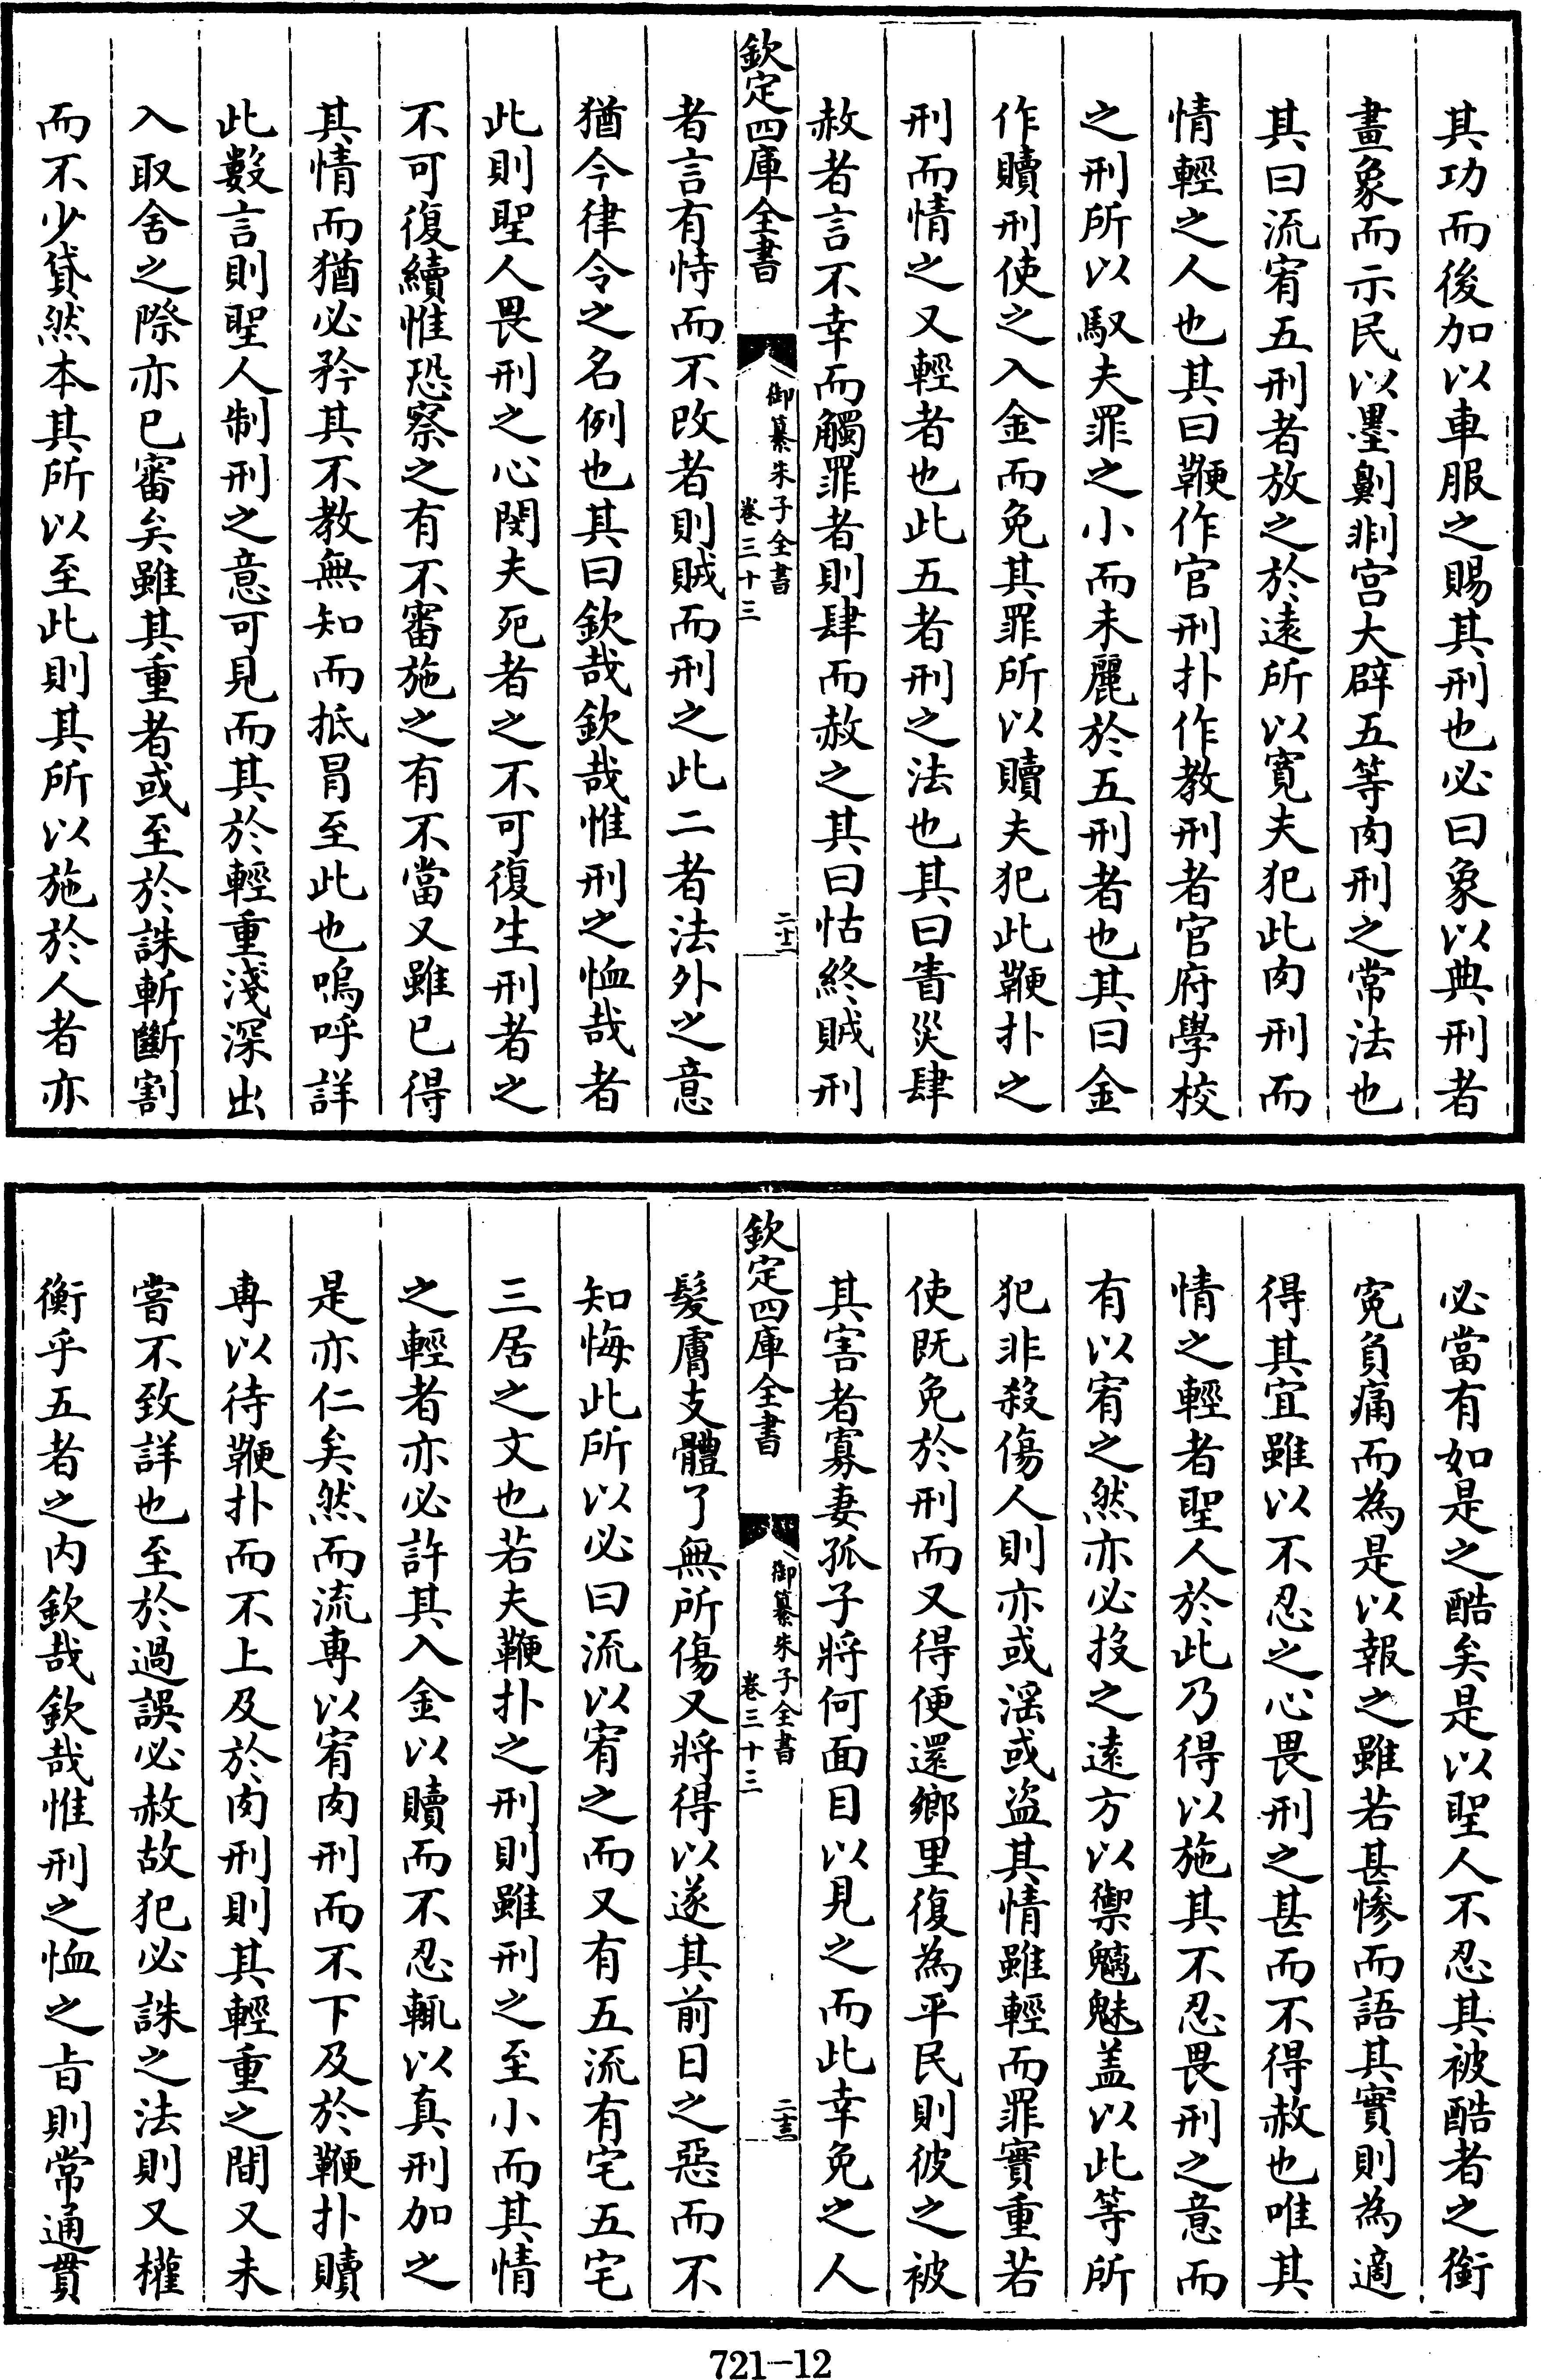 其功而後加以車服之賜其刑也必曰象以典刑者
畫象而示民以墨劓剕宫大辟五等肉刑之常法也
其曰流宥五刑者放之於逺所以寛夫犯此肉刑而
情輕之人也其曰鞭作官刑扑作教刑者官府學校
之刑所以馭夫罪之小而未麗於五刑者也其曰金
作贖刑使之入金而免其罪所以贖夫犯此鞭扑之
刑而情之又輕者也此五者刑之法也其曰眚災肆
赦者言不幸而觸罪者則肆而赦之其曰怙終賊刑
欽定四庫全書
御纂朱子全書
卷三十三
二十二
者言有恃而不改者則賊而刑之此二者法外之意
猶今律令之名例也其曰欽哉欽哉惟刑之恤哉者
此則聖人畏刑之心閔夫死者之不可復生刑者之
不可復續惟恐察之有不審施之有不當又雖已得
其情而猶必矜其不教無知而抵冒至此也嗚呼詳
此數言則聖人制刑之意可見而其於輕重淺深出
入取舍之際亦已審矣雖其重者或至於誅斬斷割
而不少貸然本其所以至此則其所以施於人者亦
必當有如是之酷矣是以聖人不忍其被酷者之銜
寃負痛而為是以報之雖若甚慘而語其實則為適
得其宜雖以不忍之心畏刑之甚而不得赦也唯其
情之輕者聖人於此乃得以施其不忍畏刑之意而
有以宥之然亦必投之逺方以禦魑魅盖以此等所
犯非殺傷人則亦或滛或盗其情雖輕而罪實重若
使既免於刑而又得便還鄉里復為平民則彼之被
其害者寡妻孤子將何面目以見之而此幸免之人
欽定四庫全書
御纂朱子全書
卷三十三
二十三
髮膚支體了無所傷又將得以遂其前日之惡而不
知悔此所以必曰流以宥之而又有五流有宅五宅
三居之文也若夫鞭扑之刑則雖刑之至小而其情
之輕者亦必許其入金以贖而不忍輒以真刑加之
是亦仁矣然而流専以宥肉刑而不下及於鞭扑贖
専以待鞭扑而不上及於肉刑則其輕重之間又未
嘗不致詳也至於過誤必赦故犯必誅之法則又權
衡乎五者之内欽哉欽哉惟刑之恤之㫖則常通貫
721-12